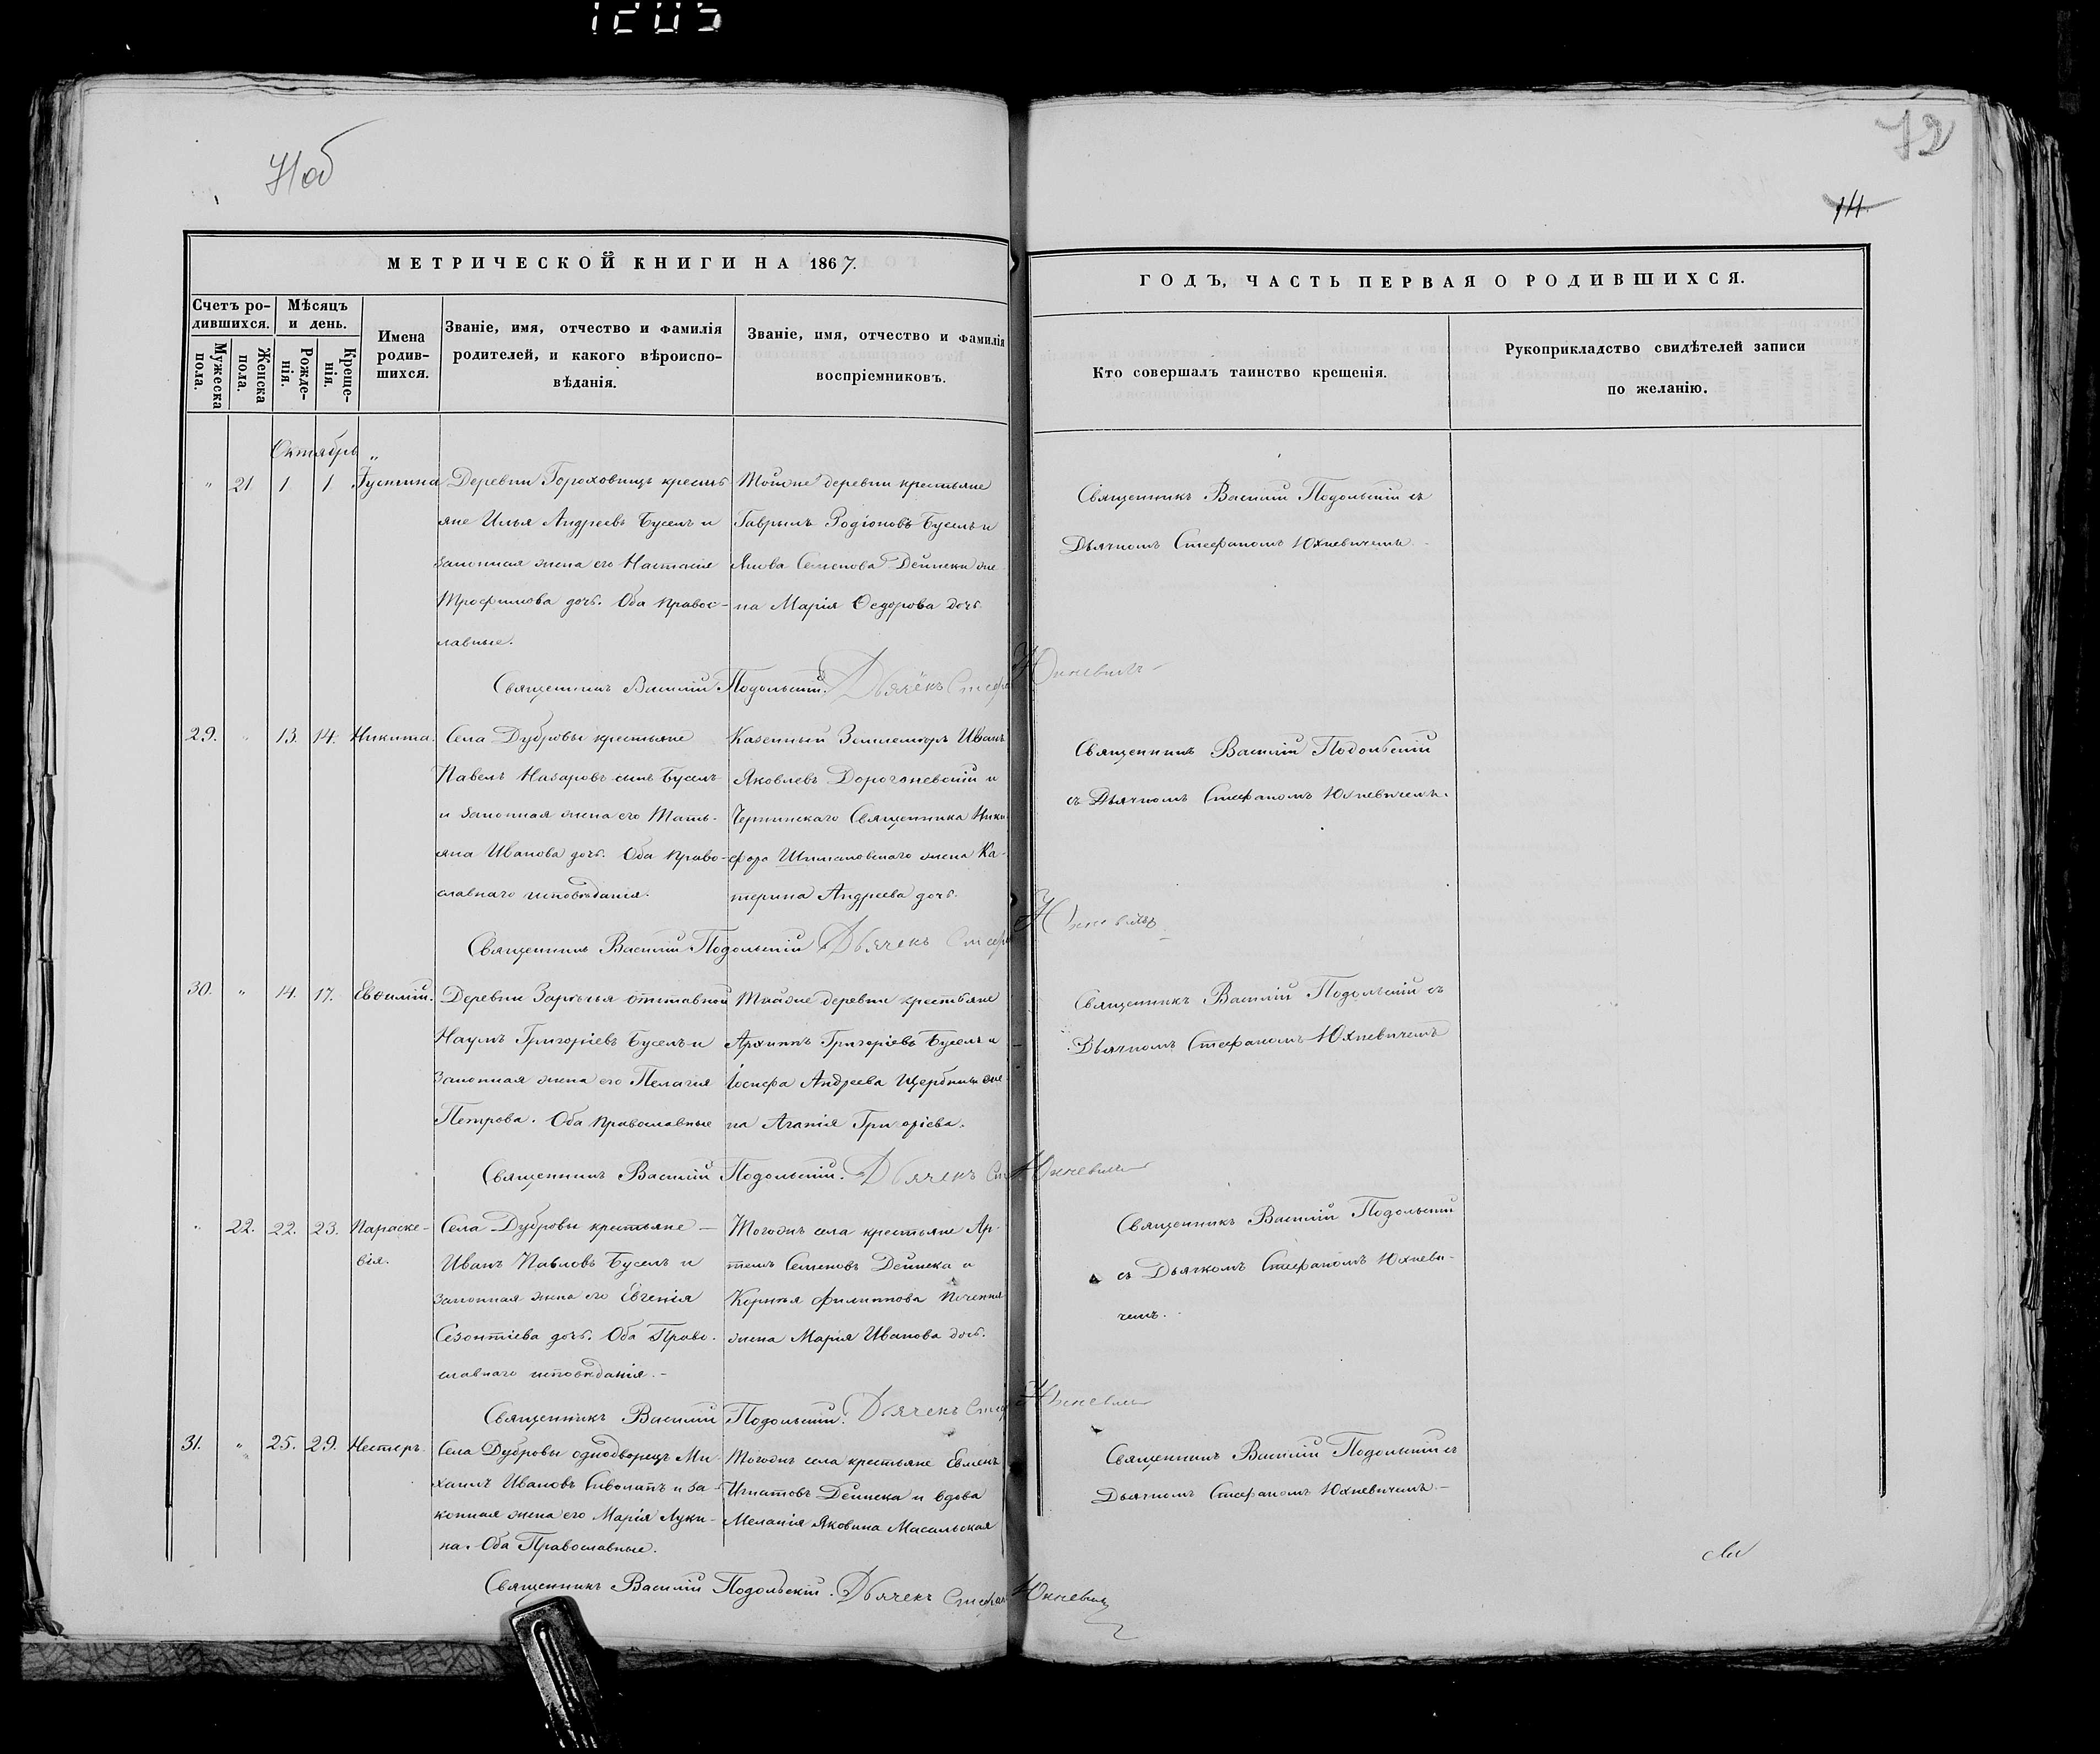 1205
71об
72
14.
МЕТРИЧЕСКОЙ КНИГИ НА 1867.
ГОДЪ, ЧАСТЬ ПЕРВАЯ О РОДИВШИХСЯ.
Счетъ родившихся.
Мужеска пола.
Женска пола.
Мѣсяцъ и день.
Рожденія.
Крещенія.
Имена родившихся.
Званіе, имя, отчество и фамилія
родителей, и какого вѣроиспо-
вѣданія.
Званіе, имя, отчество и фамилія
воспріемниковъ.
Кто совершалъ таинство крещенія.
Рукоприкладство свидѣтелей записи
по желанію.
Октябрь
" 21 1 1 Іустина
Деревни Гороховищъ кресть
яне Илья Андреевъ Буселъ и
законная жена его Настасія
Трофимова дочь. Оба правос-
лавные.
Тойже деревни крестьяне
Гаврыилъ Родіоновъ Буселъ и
Якова Семенова Дейнеки же
на Марія Ѳедорова дочь
Священникъ Василій Подольскій съ
Дьячкомъ Стефаномъ Юхневичемъ.
Священникъ Василій Подольскій. Дьячекъ Стефа Юхневичъ
29. " 13. 14. Никита.
Села Дубровы крестьяне
Павелъ Назаровъ сынъ Буселъ
и законная жена его Тать-
яна Иванова дочь. Оба право-
славнаго исповѣданія.
Казенный Землемѣръ Иванъ
Яковлевъ и
Священника Ники
фора жена Ка-
терина Андреева дочь.
Священникъ Василій Подольскій
съ Дьячкомъ Стефаномъ Юхневичемъ.
Священникъ Василій Подольскій Дьячекъ Стефа Юхневичъ
30. " 14. 17. Евѳимій.
Деревни Зарѣчья отставной
Наумъ Григоріевъ Буселъ и
Законная жена его Пелагія
Петрова. Оба православные
Тойже деревни крестьяне
Архипъ Григоріевъ Буселъ и
Іосифа Андреева Щербины же
на Агапія Григоріева.
Священникъ Василій Подольскій съ
Дьячкомъ Стефаномъ Юхневичемъ
Священникъ Василій Подольскій. Дьячекъ Ст Юхневичъ
" 22. 22. 23. Параске-
вія.
Села Дубровы крестьяне —
Иванъ Павловъ Буселъ и
законная жена его Евгенія
Созонтіева дочь. Оба Право-
славнаго исповѣданія. –
Тогожъ села крестьяне Ар-
темъ Семеновъ Дейнека и
Корнѣя Филиппова
жена Марія Иванова дочь.
Священникъ Василій Подольскій
съ Дьячкомъ Стефаномъ Юхневи-
чемъ.
Священникъ Василій Подольскій. Дьячекъ Стеф Юхневичъ
31. " 25. 29. Несторъ.
Села Дубровы однодворецъ Ми-
хаилъ Ивановъ и за-
конная жена его Марія Луки-
на. Оба Православные.
Тогожъ села крестьяне Евменъ
Игнатовъ Дейнека и вдова
Меланія Яковина Масальская
Священникъ Василій Подольскій съ
Дьячкомъ Стефаномъ Юхневичемъ. –
Священникъ Василій Подольскій. Дьячекъ Стефан Юхневичъ